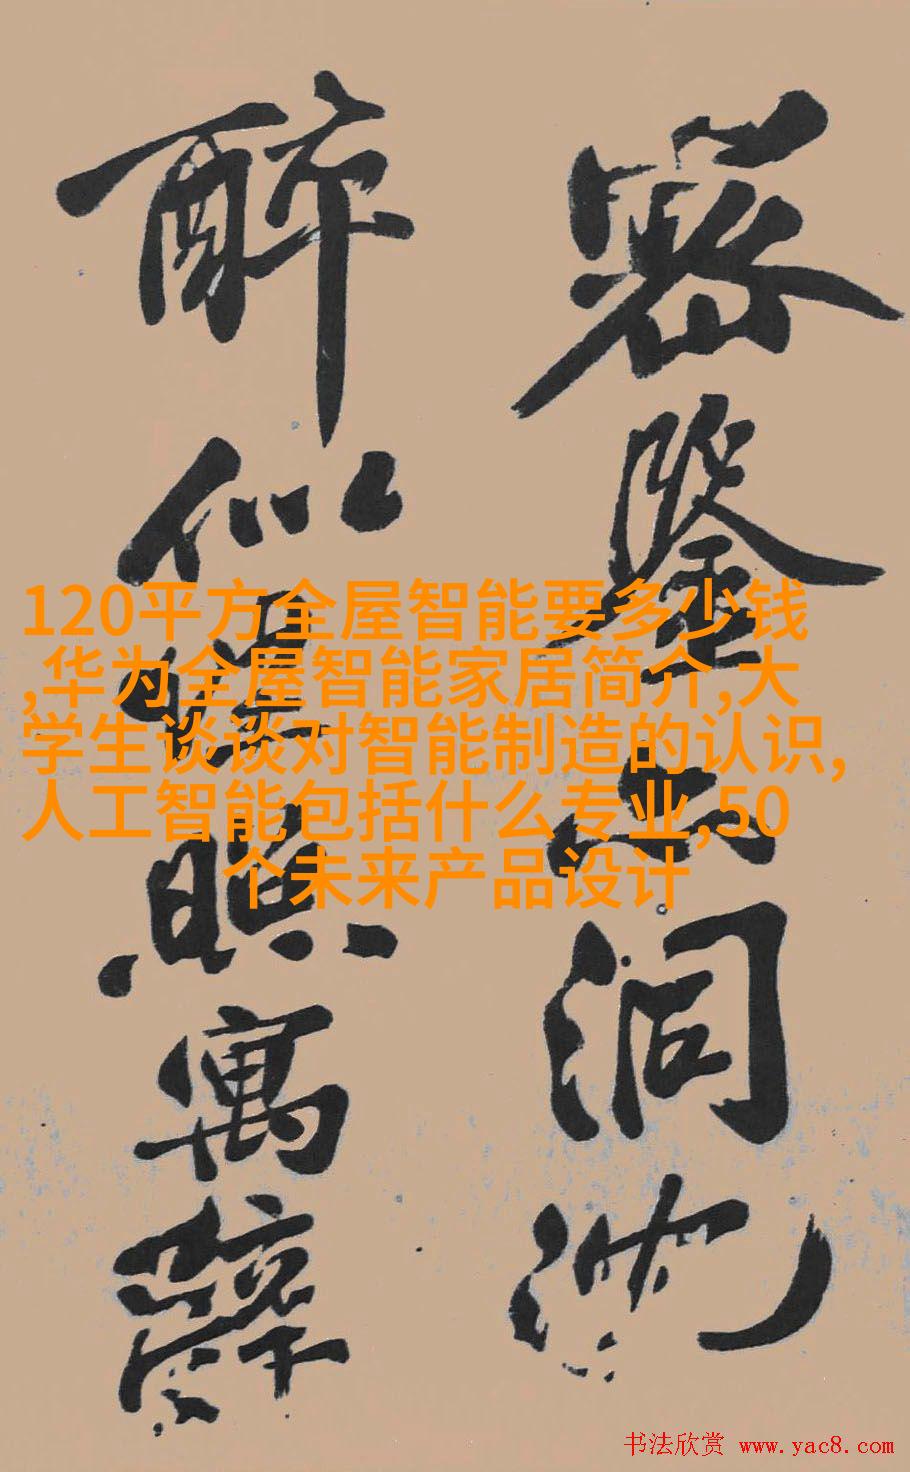 密鑒洞
醉似照寓
120平方全屋智能要多少钱
,华为全屋智能家居简介,大
学生谈谈对智能制造的认识,
人工智能包括什么专业,50
个未来产品设计
书法欣赏 www.yac8.com